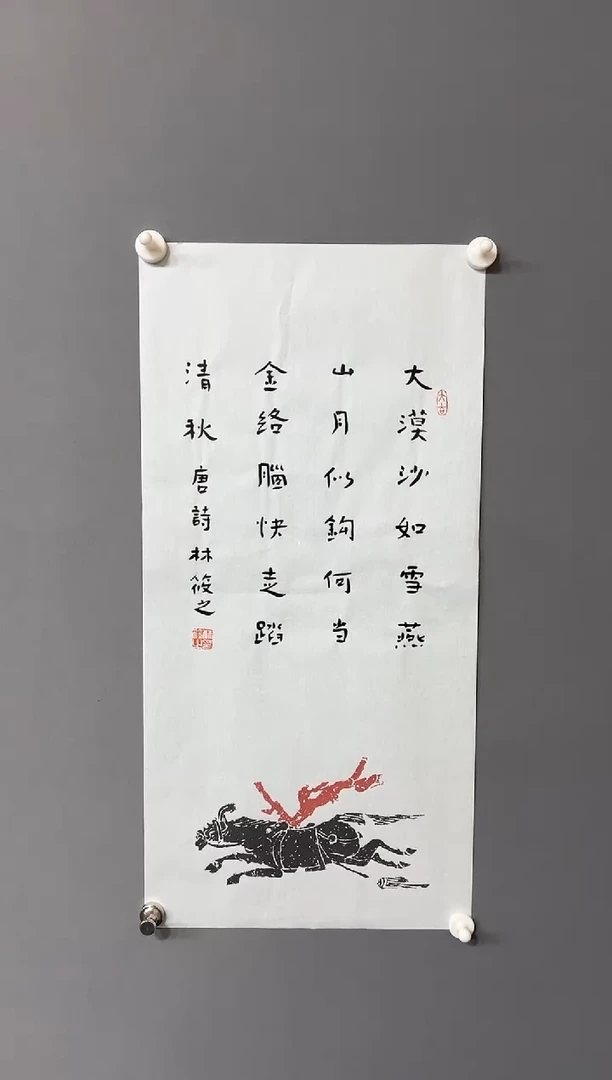 大漠沙如雪燕
山月似鈎何当
金络腦快走踏
清秋唐詩林筱之
大吉